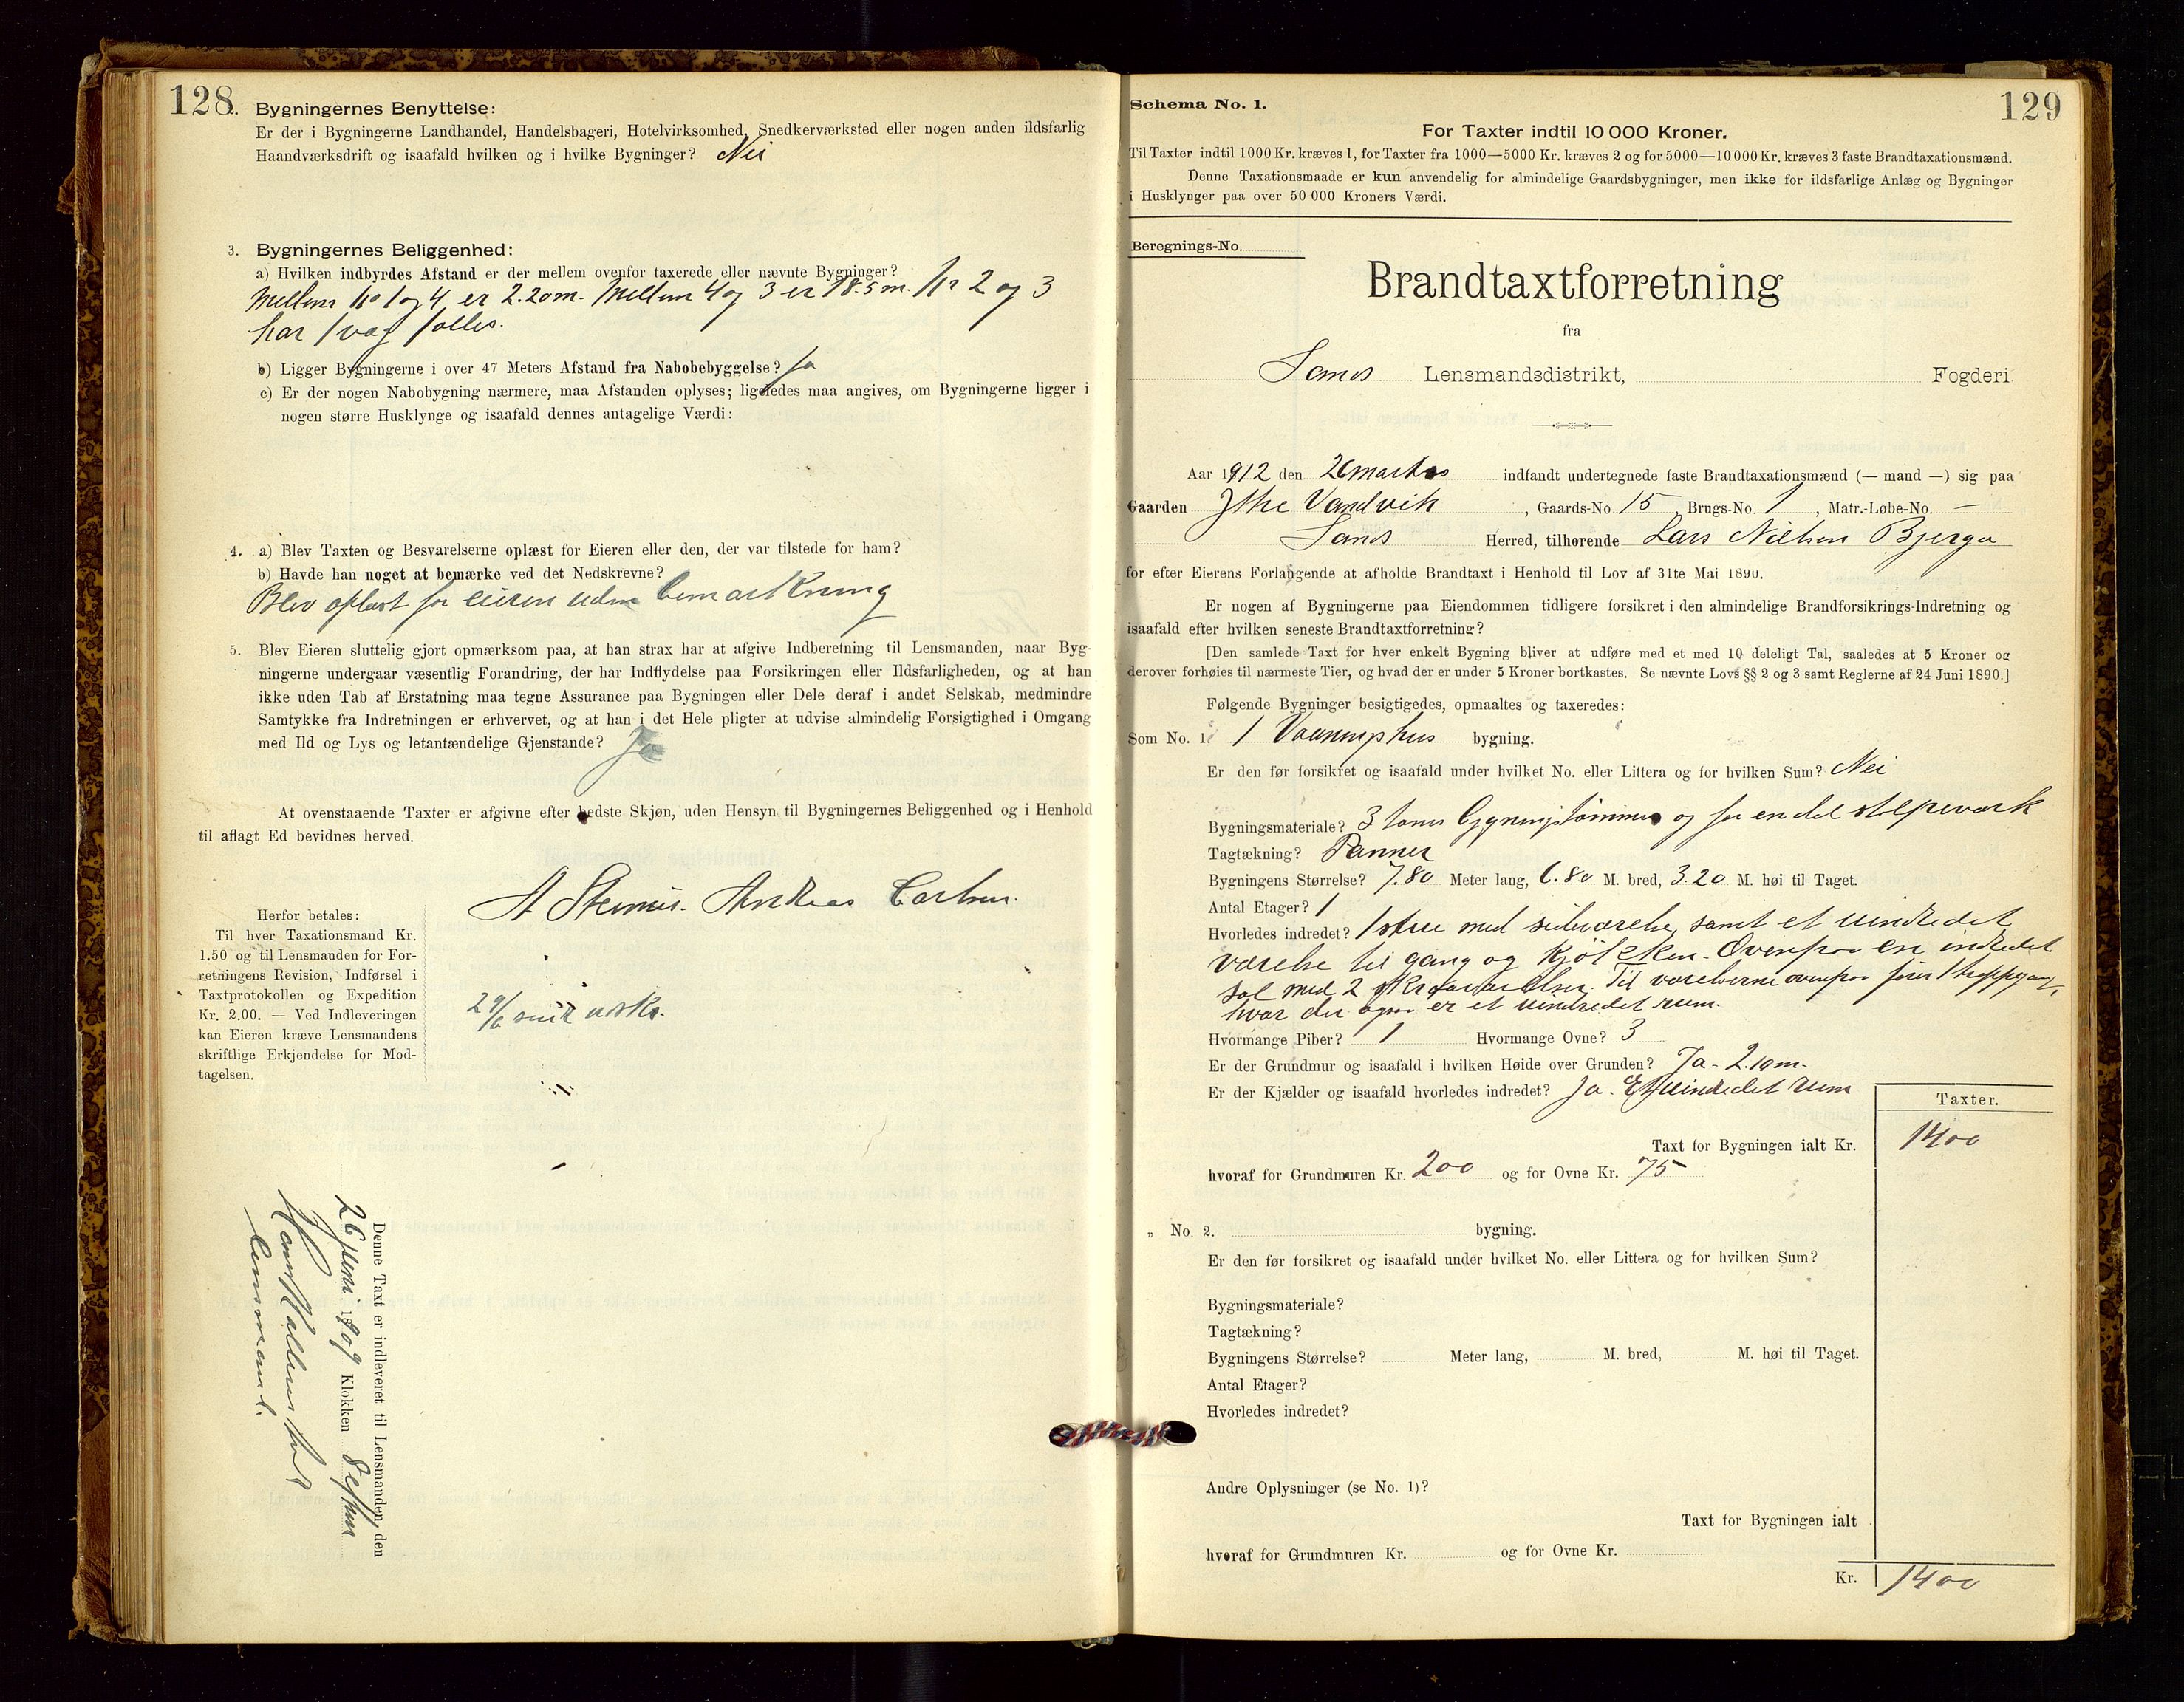 128.
Bygningernes Benyttelse:
Er der i Bygningerne Landhandel, Handelsbageri, Hotelvirksomhed, Snedkerværksted eller nogen anden ildsfarlig
Haandværksdrift og isaafald hvilken og i hvilke Bygninger? Nei
3. Bygningernes Beliggenhed:
a) Hvilken indbyrdes Afstand er der mellem ovenfor taxerede eller nævnte Bygninger?
Mellem No 1 og 4 er 2.20 m. Mellem 4 og 3 er 18.5 m. Nr 2 og 3
har 1 væg fælles.
b) Ligger Bygningerne i over 47 Meters Afstand fra Nabobebyggelse? Ja
c) Er der nogen Nabobygning nærmere, maa Afstanden oplyses; ligeledes maa angives, om Bygningerne ligger i
nogen større Husklynge og isaafald dennes antagelige Værdi:
4. a) Blev Taxten og Besvarelserne oplæst for Eieren eller den, der var tilstede for ham?
b) Havde han noget at bemærke ved det Nedskrevne?
Blev oplæst for eieren uden bemærkning
5. Blev Eieren sluttelig gjort opmærksom paa, at han strax har at afgive Indberetning til Lensmanden, naar Byg-
ningerne undergaar væsentlig Forandring, der har Indflydelse paa Forsikringen eller Ildsfarligheden, og at han
ikke uden Tab af Erstatning maa tegne Assurance paa Bygningen eller Dele deraf i andet Selskab, medmindre
Samtykke fra Indretningen er erhvervet, og at han i det Hele pligter at udvise almindelig Forsigtighed i Omgang
med Ild og Lys og letantændelige Gjenstande? Ja
At ovenstaaende Taxter er afgivne efter bedste Skjøn, uden Hensyn til Bygningernes Beliggenhed og i Henhold
til aflagt Ed bevidnes herved.
Andreas
Herfor betales:
Til hver Taxationsmand Kr.
1.50 og til Lensmanden for For-
retningens Revision, Indførsel i
Taxtprotokollen og Expedition
Kr. 2.00. — Ved Indleveringen
kan Eieren kræve Lensmandens
skriftlige Erkjendelse for Mod-
tagelsen.
29/6
Denne Taxt er indleveret til Lensmanden, den
26 juni 1909 Klokken 8
lensmand.
129
Schema No. 1.
For Taxter indtil 10 000 Kroner.
Til Taxter indtil 1000 Kr. kræves 1, for Taxter fra 1000—5000 Kr. kræves 2 og for 5000—10 000 Kr. kræves 3 faste Brandtaxationsmænd.
Denne Taxationsmaade er kun anvendelig for almindelige Gaardsbygninger, men ikke for ildsfarlige Anlæg og Bygninger
i Husklynger paa over 50 000 Kroners Værdi.
Beregnings-No.
Brandtaxtforretning
fra
Sands Lensmandsdistrikt, Fogderi
Aar 1912 den 26 marts indfandt undertegnede faste Brandtaxationsmænd (— mand —) sig paa
Gaarden Ytre Vandvik, Gaards-No. 15, Brugs-No. 1, Matr.-Løbe-No. —
Sands Herred, tilhørende Lars Nielsen Bjerga
for efter Eierens Forlangende at afholde Brandtaxt i Henhold til Lov af 31te Mai 1890.
Er nogen af Bygningerne paa Eiendommen tidligere forsikret i den almindelige Brandforsikrings-Indretning og
isaafald efter hvilken seneste Brandtaxtforretning?
[Den samlede Taxt for hver enkelt Bygning bliver at udføre med et med 10 deleligt Tal, saaledes at 5 Kroner og
derover forhøies til nærmeste Tier, og hvad der er under 5 Kroner bortkastes. Se nævnte Lovs §§ 2 og 3 samt Reglerne af 24 Juni 1890.]
Følgende Bygninger besigtigedes, opmaaltes og taxeredes:
Som No. 1. 1 Vaaningshus bygning.
Er den før forsikret og isaafald under hvilket No. eller Littera og for hvilken Sum? Nei
Bygningsmateriale? 3 toms bygningstømmer og for en del stolpeværk
Tagtækning? Panner
Bygningens Størrelse? 7.80 Meter lang, 6.80 M. bred, 3.20 M. høi til Taget.
Antal Etager? 1
Hvorledes indredet? 1 stue med sideværelse, samt et uindredet
værelse til gang og kjøkken. Ovenpaa en indredet
sal med 2 Til værelserne ovenpaa fører 1 trappegang,
hvor der ogsaa er et uindredet rum.
Hvormange Piber? 1 Hvormange Ovne? 3
Er der Grundmur og isaafald i hvilken Høide over Grunden? Ja - 2.10 m.
Er der Kjælder og isaafald hvorledes indredet? Ja. Et uindredet rum
Taxter.
Taxt for Bygningen ialt Kr. 1400
hvoraf for Grundmuren Kr. 200 og for Ovne Kr. 75
„ No. 2. bygning.
Er den før forsikret og isaafald under hvilket No. eller Littera og for hvilken Sum?
Bygningsmateriale?
Tagtækning?
Bygningens Størrelse? Meter lang, M. bred, M. høi til Taget.
Antal Etager?
Hvorledes indredet?
Andre Oplysninger (se No. 1)?
Taxt for Bygningen ialt
hvoraf for Grundmuren Kr. og for Ovne Kr.
Kr. 1400